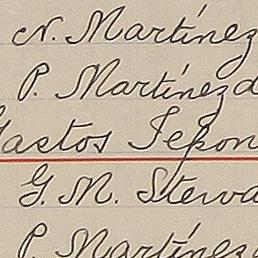 N. Martínez
P. Martínez d
Gastos Tepon
G. M. Stewa
P. Martínez d